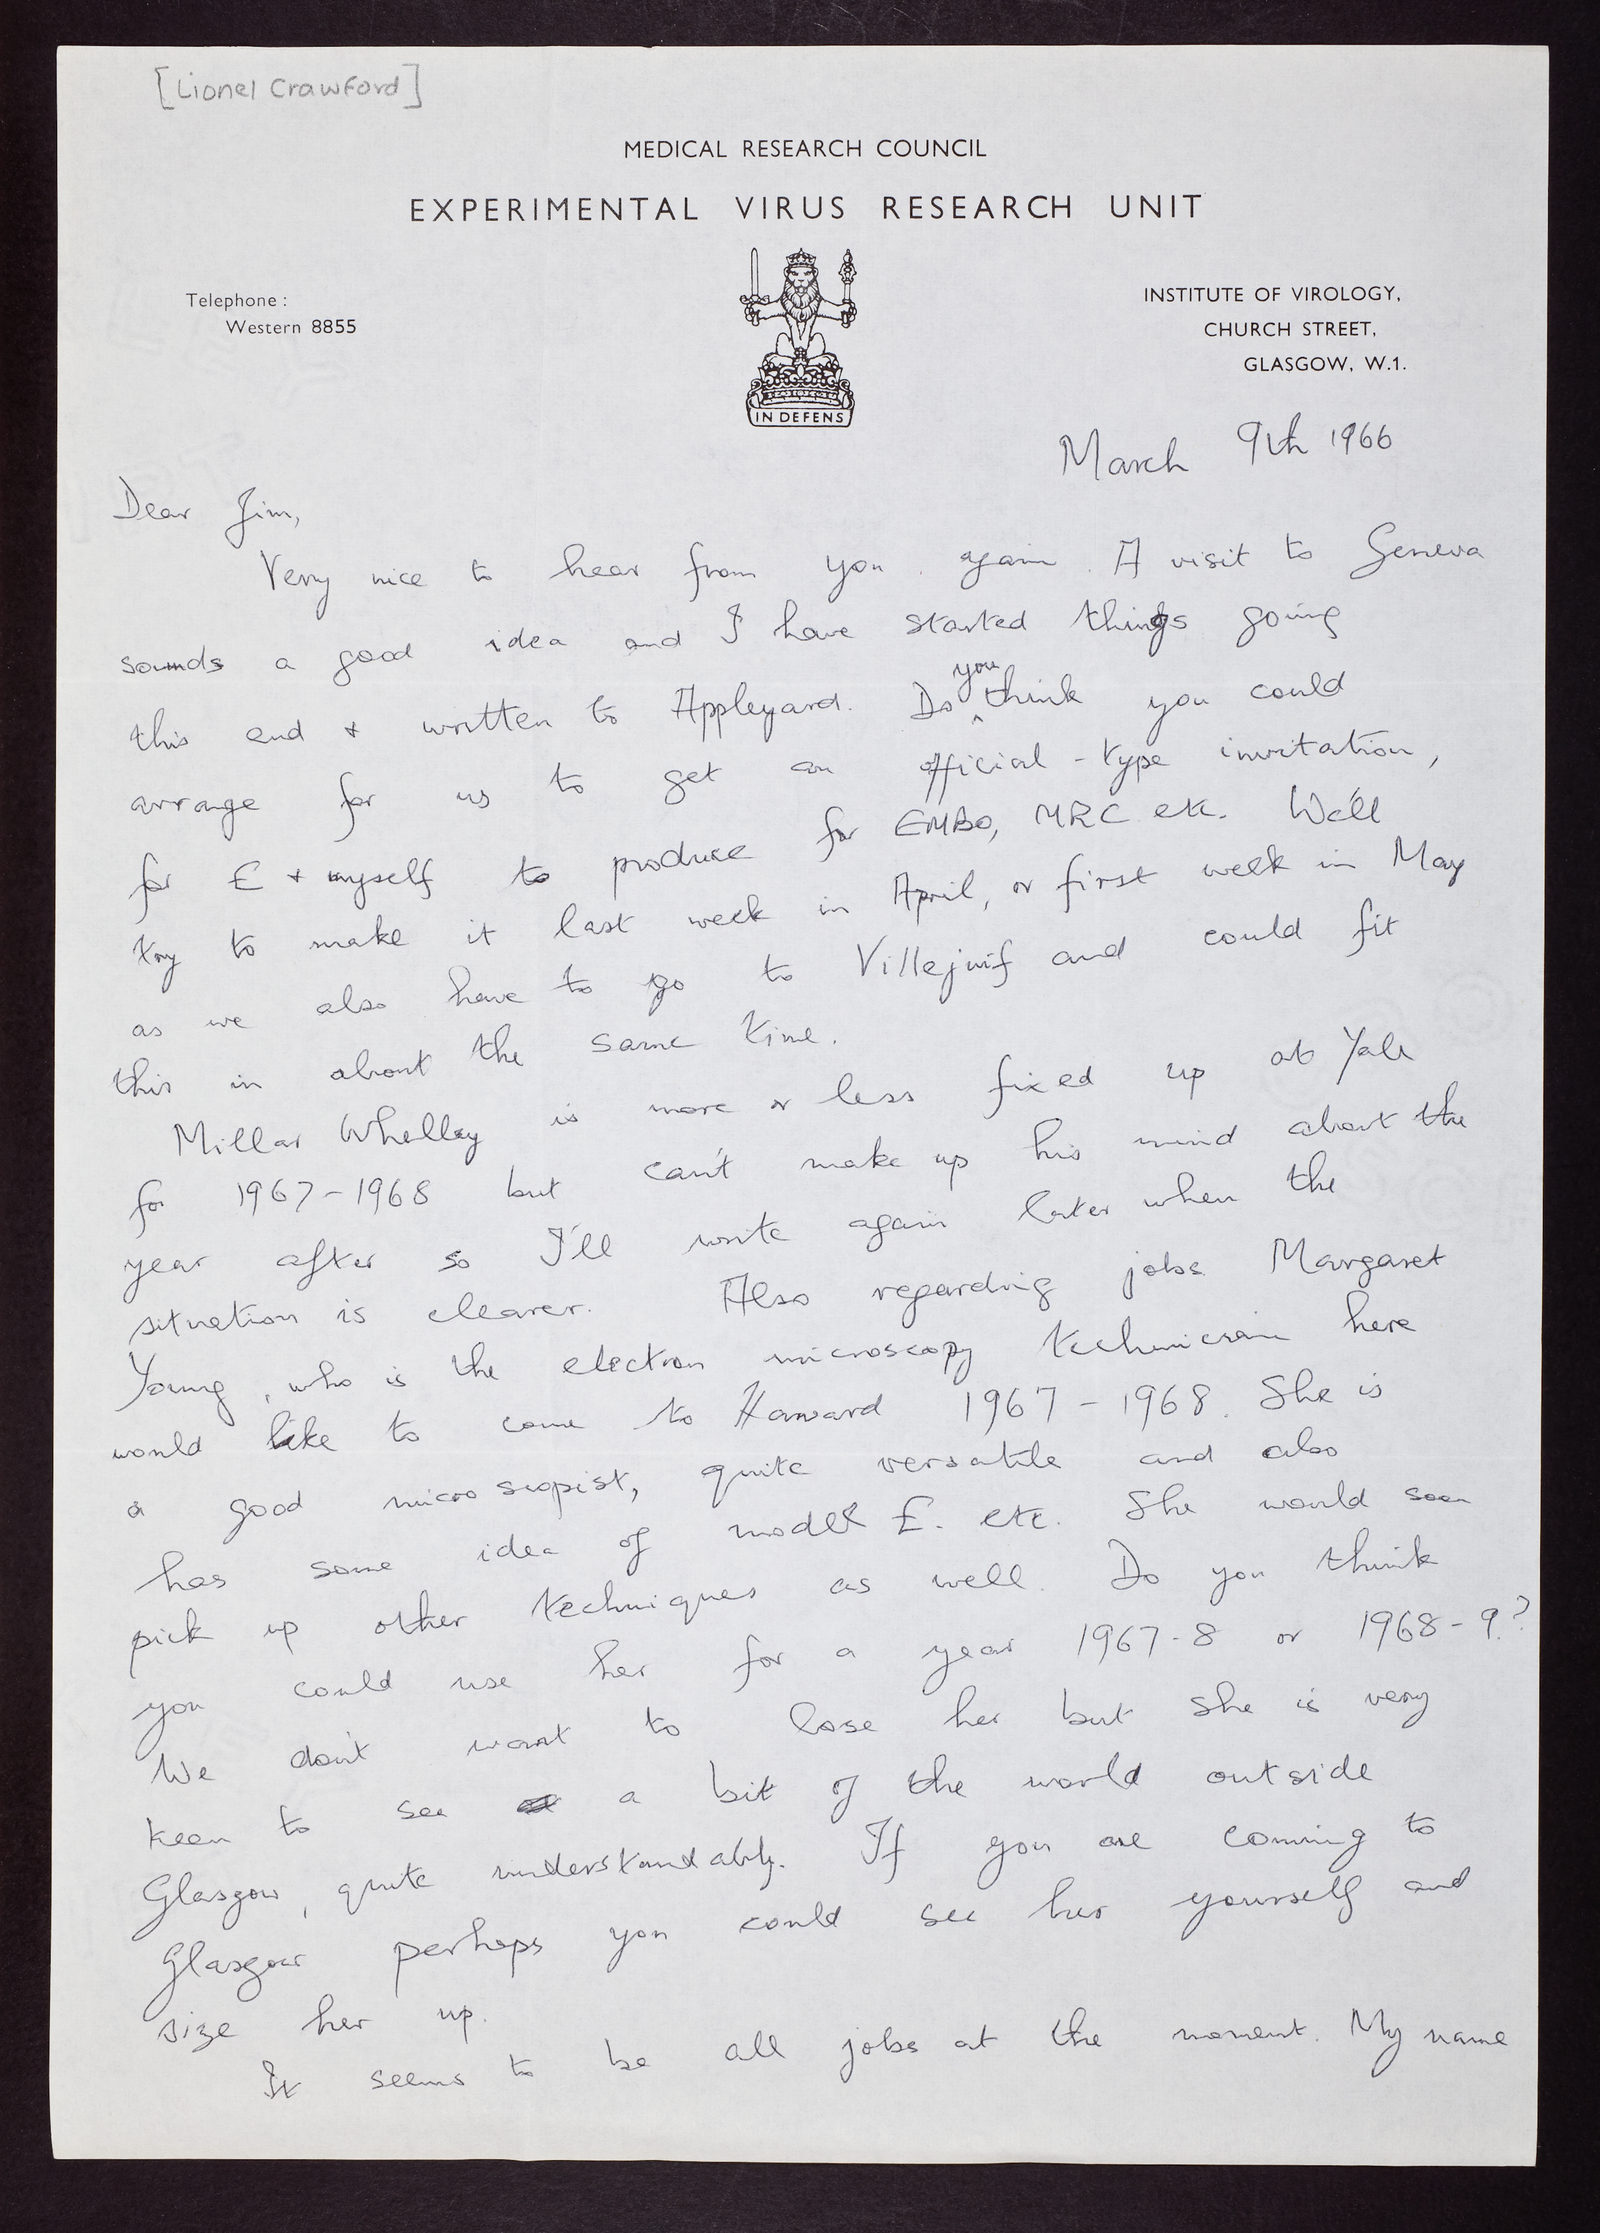 [Lionel Crawford]
MEDICAL RESEARCH COUNCIL
EXPERIMENTAL VIRUS RESEARCH UNIT
Telephone:
Western 8855
IN DEFENS
INSTITUTE OF VIROLOGY,
CHURCH STREET,
GLASGOW, W.1.
March 9th 1966
Dear Jim,
Very nice to hear from you again. A visit to Geneva
sounds a good idea and I have started things going
this end + written to Appleyard. Do you think you could
arrange for us to get an official-type invitation,
for E + myself to produce for EMBO, MRC etc. We'll
try to make it last week in April, or first week in May
as we also have to go to Villejuif and could fit
this in about the same time.
Millar Whalley is more or less fixed up at Yale
for 1967-1968 but can't make up his mind about the
year after so I'll write again later when the
situation is clearer. Also regarding jobs Margaret
Young, who is the electron microscopy technician here
would like to come to Harvard 1967-1968. She is
a good microscopist, quite versatile and also
has some idea of model E. etc. She would soon
pick up other techniques as well. Do you think
you could use her for a year 1967-8 or 1968-9?
We don't want to lose her but she is very
keen to see a bit of the world outside
Glasgow, quite understandably. If you are coming to
Glasgow perhaps you could see her yourself and
size her up.
It seems to be all jobs at the moment. My name